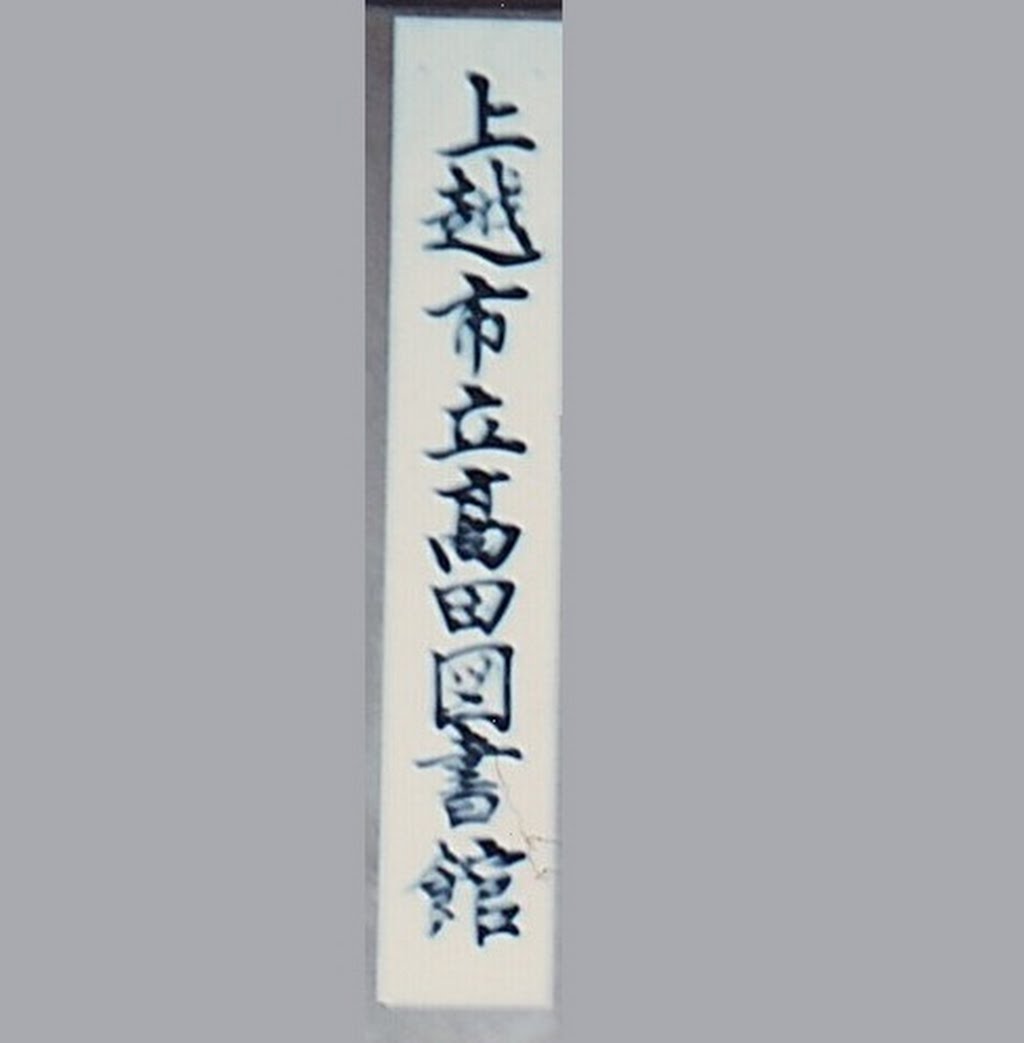 上越市立高田図書館